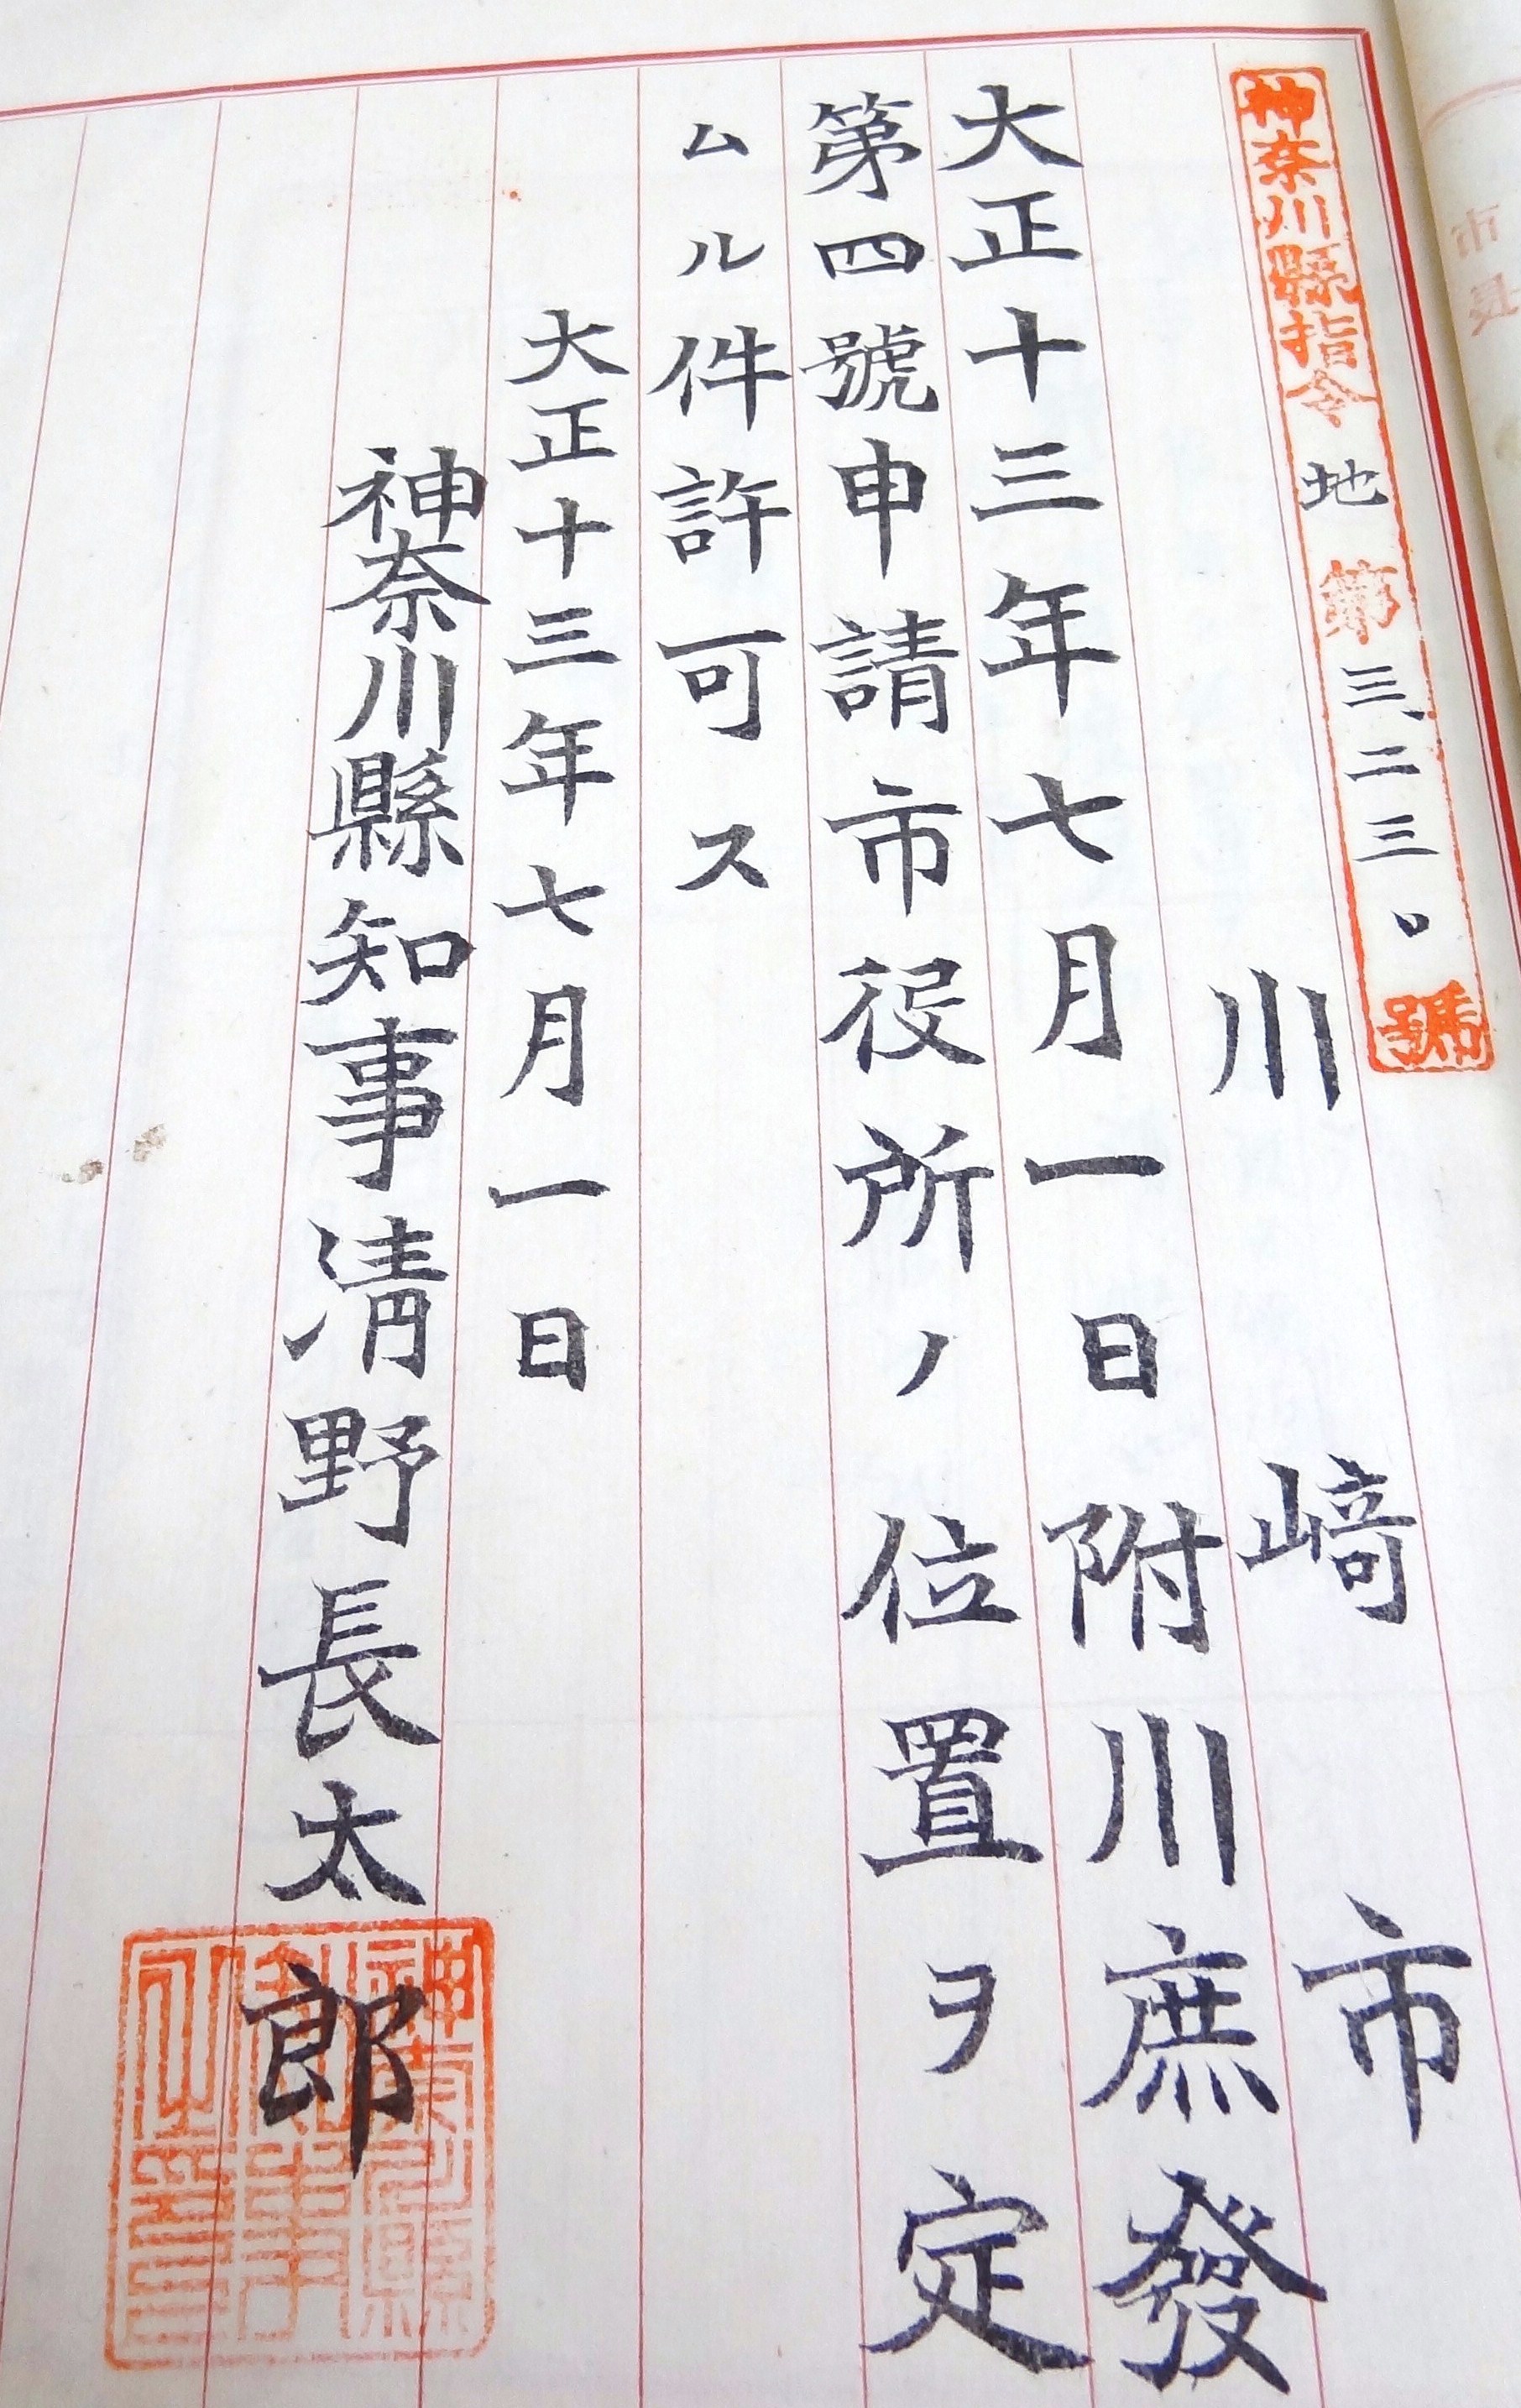 神奈川縣指令地第三、二三〇號
川崎市
大正十三年七月一日附川庶發
第四號申請市役所ノ位置ヲ定
ムル件許可ス
大正十三年七月一日
神奈川縣知事清野長太郎